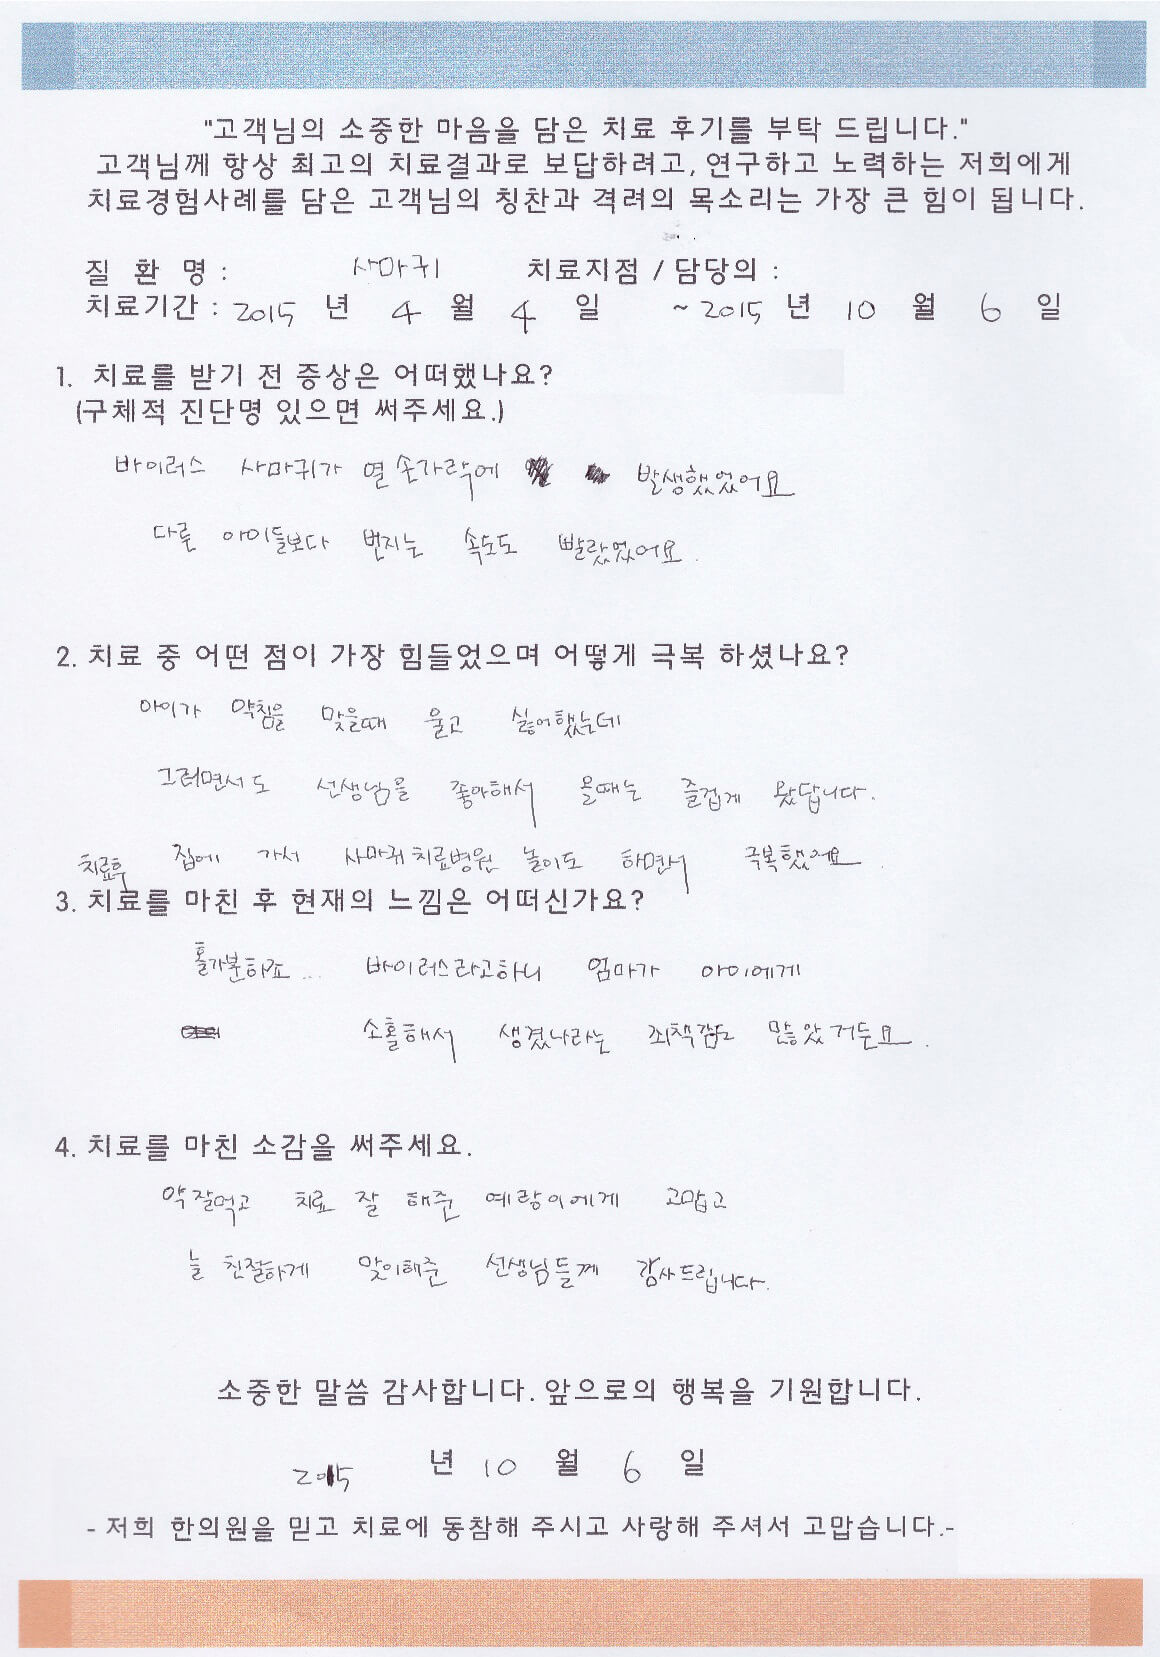 "고객님의 소중한 마음을 담은 치료 후기를 부탁 드립니다."
고객님께 항상 최고의 치료결과로 보답하려고, 연구하고 노력하는 저희에게
치료경험사례를 담은 고객님의 칭찬과 격려의 목소리는 가장 큰 힘이 됩니다.
질 환 명 : 사마귀 치료지점 / 담당의 :
치료기간 : 2015 년 4 월 4 일 ~ 2015 년 10 월 6 일
1. 치료를 받기 전 증상은 어떠했나요?
(구체적 진단명 있으면 써주세요.)
바이러스 사마귀가 열 손가락에 발생했었어요
다른 아이들보다 번지는 속도도 빨랐었어요.
2. 치료 중 어떤 점이 가장 힘들었으며 어떻게 극복 하셨나요?
아이가 약침을 맞을때 울고 싫어했는데
그러면서도 선생님을 좋아해서 올때는 즐겁게 왔답니다.
치료후 집에 가서 사마귀치료병원 놀이도 하면서 극복했어요.
3. 치료를 마친 후 현재의 느낌은 어떠신가요?
홀가분하죠... 바이러스라고하니 엄마가 아이에게
소홀해서 생겼나라는 죄책감도 많았거든요.
4. 치료를 마친 소감을 써주세요.
약 잘먹고 치료 잘 해준 예랑이에게 고맙고
늘 친절하게 맞이해준 선생님들께 감사드립니다.
소중한 말씀 감사합니다. 앞으로의 행복을 기원합니다.
2015 년 10 월 6 일
- 저희 한의원을 믿고 치료에 동참해 주시고 사랑해 주셔서 고맙습니다.-